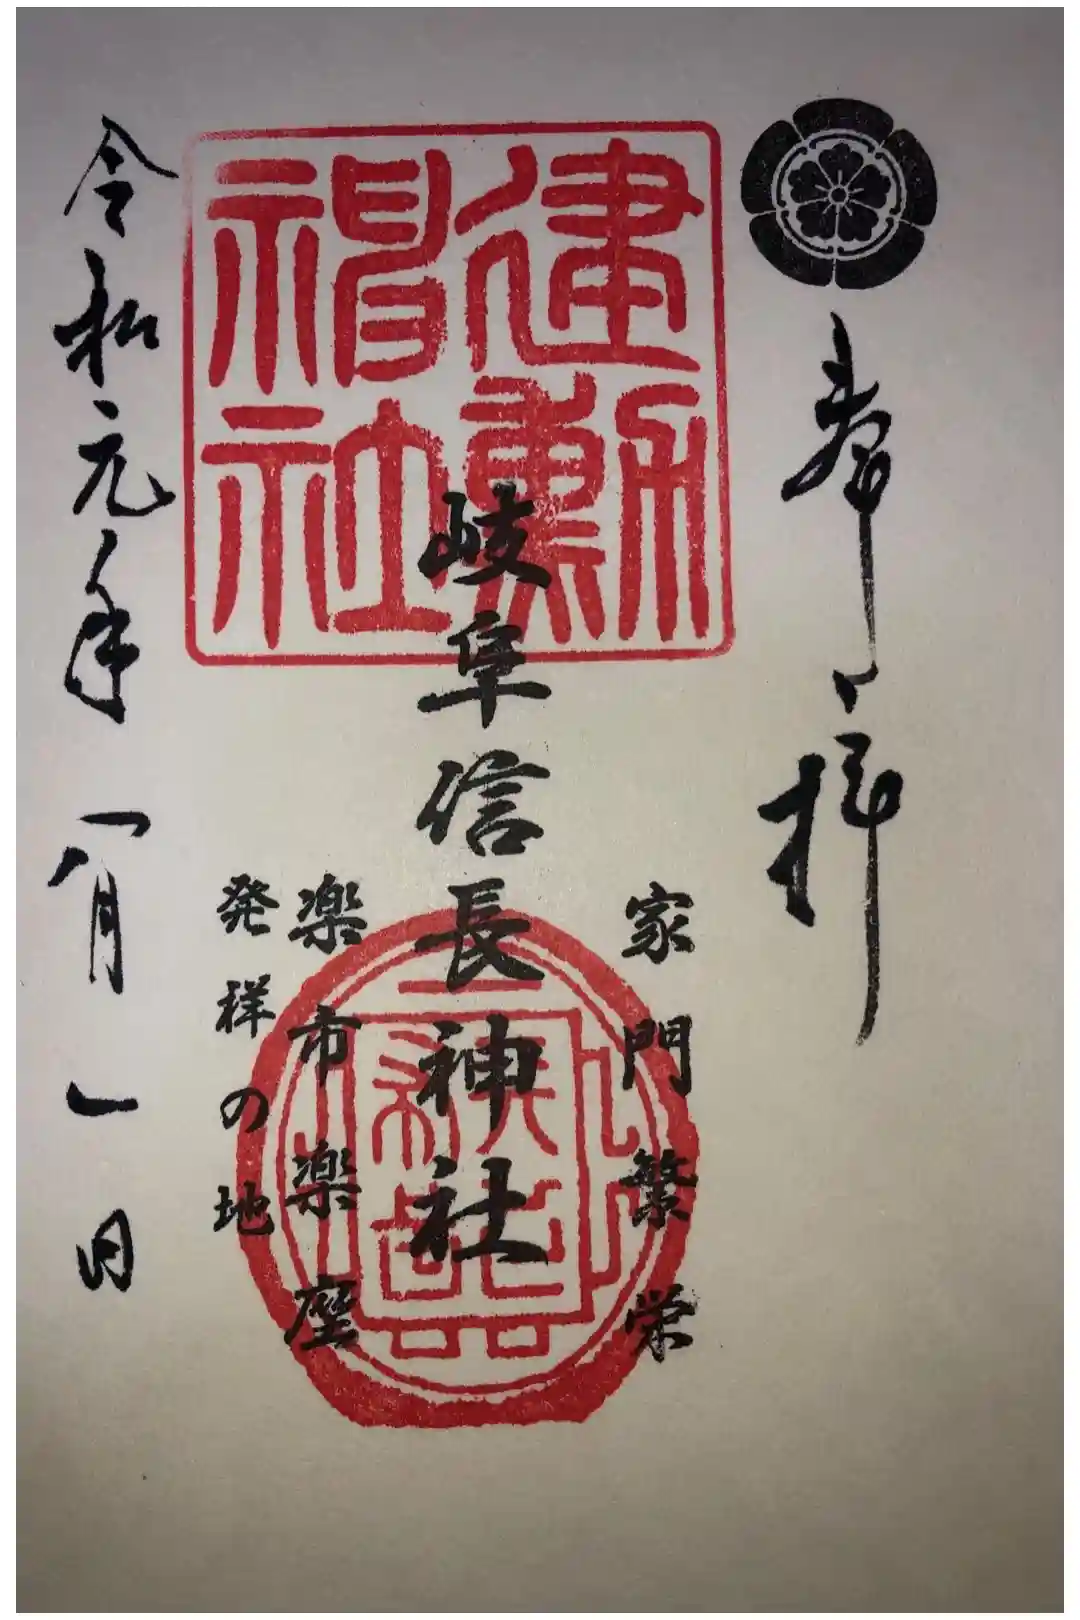 奉拝
家門繁栄
建勲
神社
岐阜信長神社
楽市楽座
発祥の地
令和元年八月一日